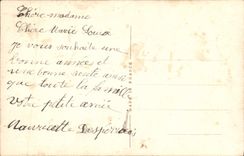 Chère madame
Chère Marie Louise
je vous souhaite une
bonne année et
une bonne santé ainsi
que toute la famille
votre petite amie
Mauricette